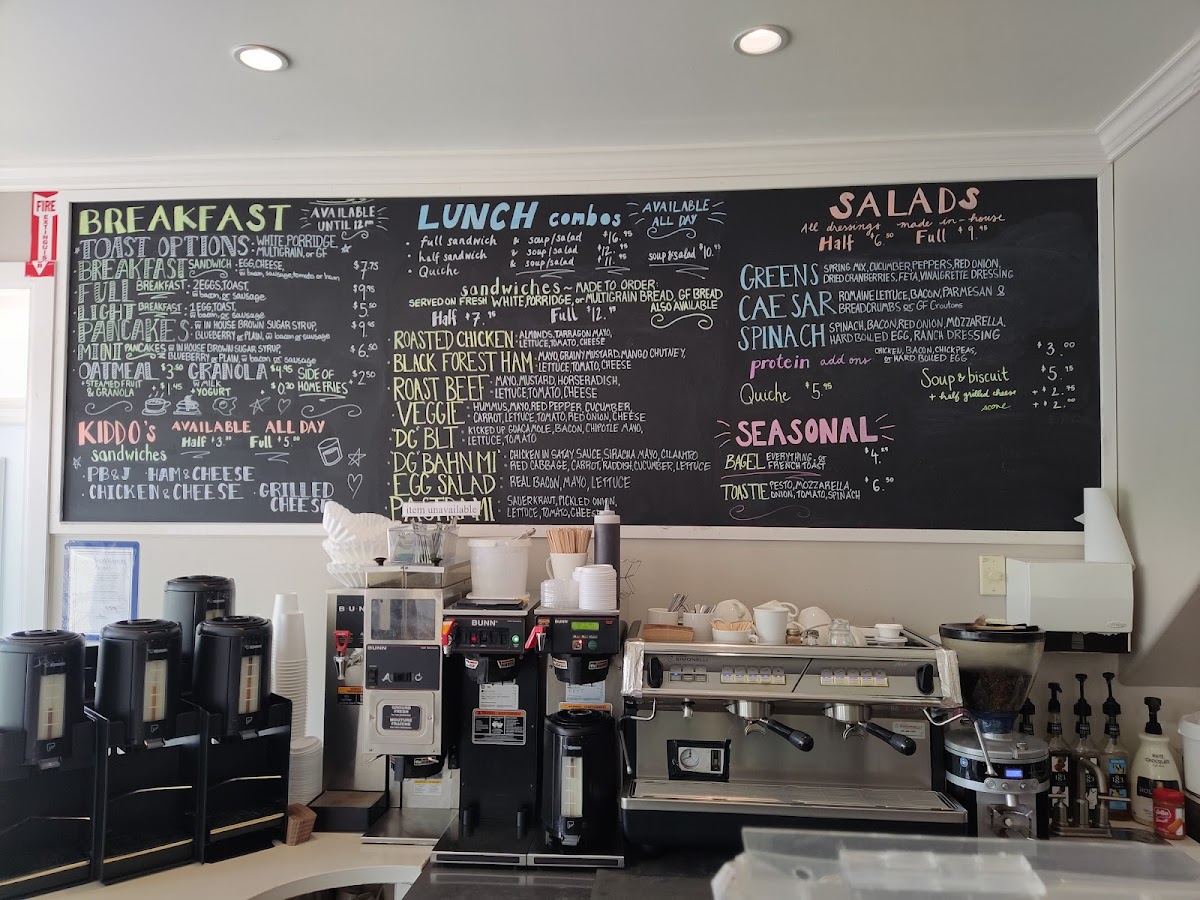 FIRE
BREAKFAST
AVAILABLE
UNTIL 12pm
TOAST OPTIONS · WHITE, PORRIDGE,
MULTIGRAIN, or GF
BREAKFAST SANDWICH · EGG, CHEESE,
w bacon, sausage, tomato or ham $7.75
FULL BREAKFAST · 2 EGGS, TOAST,
w bacon, or sausage $9.95
LIGHT BREAKFAST · 1 EGG, TOAST,
w bacon, or sausage $5.50
PANCAKES w IN HOUSE BROWN SUGAR SYRUP,
BLUEBERRY or PLAIN, w bacon or sausage
MINI PANCAKES w IN HOUSE BROWN SUGAR SYRUP,
BLUEBERRY or PLAIN, w bacon or sausage $6.50
OATMEAL $3.50 GRANOLA $4.95 SIDE OF
HOME FRIES $2.50
+ STEAMED FRUIT
& GRANOLA + $1.45
w MILK
YOGURT
KIDDO'S AVAILABLE ALL DAY
sandwiches Half $3.50 Full $5.00
· PB & J · HAM & CHEESE
· CHICKEN & CHEESE · GRILLED
CHEESE
LUNCH combos
AVAILABLE
ALL DAY
· full sandwich & soup/salad $16.95
· half sandwich & soup/salad
· Quiche & soup/salad
soup & salad $10.
sandwiches ~ MADE TO ORDER
SERVED ON FRESH WHITE, PORRIDGE, or MULTIGRAIN BREAD, GF BREAD
ALSO AVAILABLE
Half $7. Full $12.95
ROASTED CHICKEN · ALMONDS, TARRAGON MAYO,
LETTUCE, TOMATO, CHEESE
BLACK FOREST HAM · MAYO, GRAINY MUSTARD, MANGO CHUTNEY,
LETTUCE, TOMATO, CHEESE
ROAST BEEF · MAYO, MUSTARD, HORSERADISH,
LETTUCE, TOMATO, CHEESE
VEGGIE · HUMMUS, MAYO, RED PEPPER, CUCUMBER
CARROT, LETTUCE, TOMATO, RED ONION, CHEESE
DG' BLT · KICKED UP GUACAMOLE, BACON, CHIPOTLE MAYO,
LETTUCE, TOMATO
DG' BAHN MI' · CHICKEN IN SATAY SAUCE, SIRACHA MAYO, CILANTRO
RED CABBAGE, CARROT, RADDISH, CUCUMBER, LETTUCE
EGG SALAD · REAL BACON, MAYO, LETTUCE
PASTRAMI · SAUERKRAUT, PICKLED ONION,
LETTUCE, TOMATO, CHEESE
item unavailable
SALADS
All dressings made in-house
Half $6.50 Full $9.95
GREENS SPRING MIX, CUCUMBER, PEPPERS, RED ONION,
DRIED CRANBERRIES, FETA, VINAIGRETTE DRESSING
CAESAR ROMAINE LETTUCE, BACON, PARMESAN &
BREADCRUMBS or GF Croutons
SPINACH SPINACH, BACON, RED ONION, MOZZARELLA,
HARD BOILED EGG, RANCH DRESSING
protein add ons CHICKEN, BACON, CHICKPEAS,
or HARD BOILED EGG $3.00
Quiche $5.95
Soup & biscuit $5.
+ half grilled cheese
scone + $2.00
SEASONAL
BAGEL EVERYTHING, or
FRENCH TOAST
TOASTIE PESTO, MOZZARELLA,
ONION, TOMATO, SPINACH $6.50
BUNN
BUNN
BUNN
BUNN
SIMONELLI
WHITE
CHOCOLATE